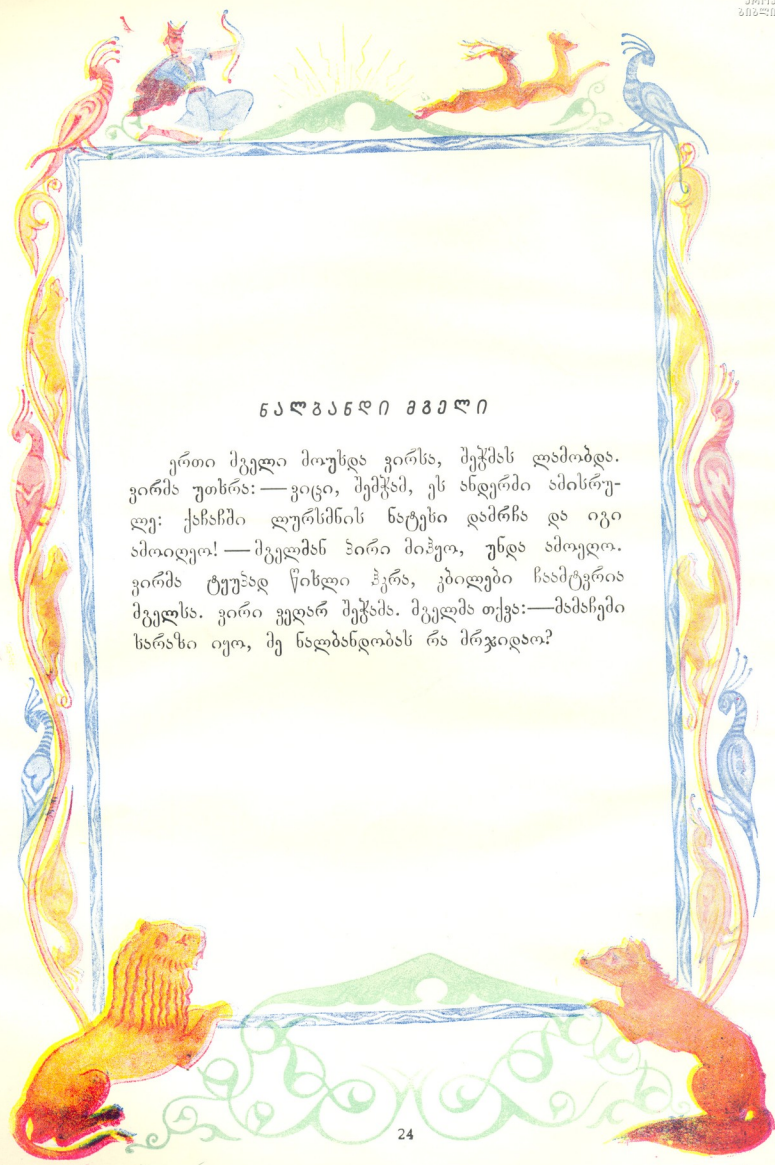 ნალბანდი მგელი
ერთი მგელი მოუხდა ვირსა, შეჭმას ლამობდა.
ვირმა უთხრა: — ვიცი, შემჭამ, ეს ანდერძი ამისრუ-
ლე: ქაჩაჩში ლურსმნის ნატეხი დამრჩა და იგი
ამოიღეო! — მგელმან პირი მიჰყო, უნდა ამოეღო.
ვირმა ტყუპად წიხლი ჰკრა, კბილები ჩაამტვრია
მგელსა. ვირი ვეღარ შეჭამა. მგელმა თქვა: — მამაჩემი
სარაზი იყო, მე ნალბანდობას რა მრჯიდაო?
24